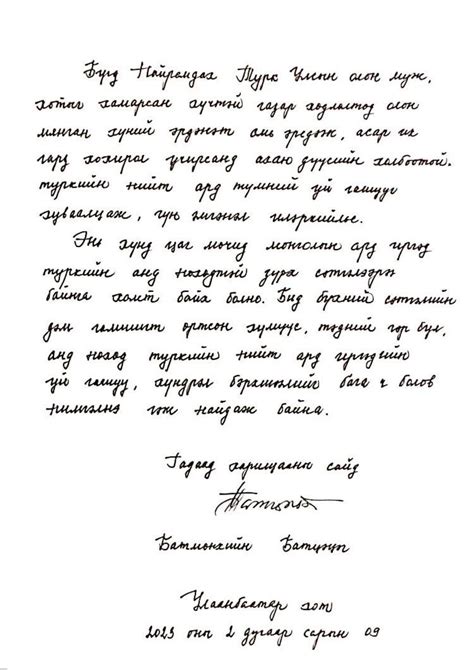 Бүгд Найрамдах Турк Улсын олон муж,
хотыг хамарсан хүчтэй газар хөдлөлтөд олон
мянган хүний эрдэнэт амь эрсдэж, асар их
гарз хохирол учирсанд агаю дуусийн холбоотой.
туркийн нийт ард түмний уй гашууг
хуваалцаж, гүн эмгэнэл илэрхийлье.
Энэ хүнд цаг мөчид монголын ард иргэд
туркийн анд нөхөдтэй зүрх сэтгэлээрээ
байнга хамт байх болно. Бид бүхний сэтгэлийн
дэм гамшигт өртсөн хүмүүс, тэдний гэр бүл,
анд нөхөд туркийн нийт ард иргэдийн
уй гашуу, хүндрэл бэрхшээлийг бага ч болов
нимгэлнэ гэж найдаж байна.
Гадаад харилцааны сайд
Батмөнхийн Батцэцэг
Улаанбаатар хот
2023 оны 2 дугаар сарын 09